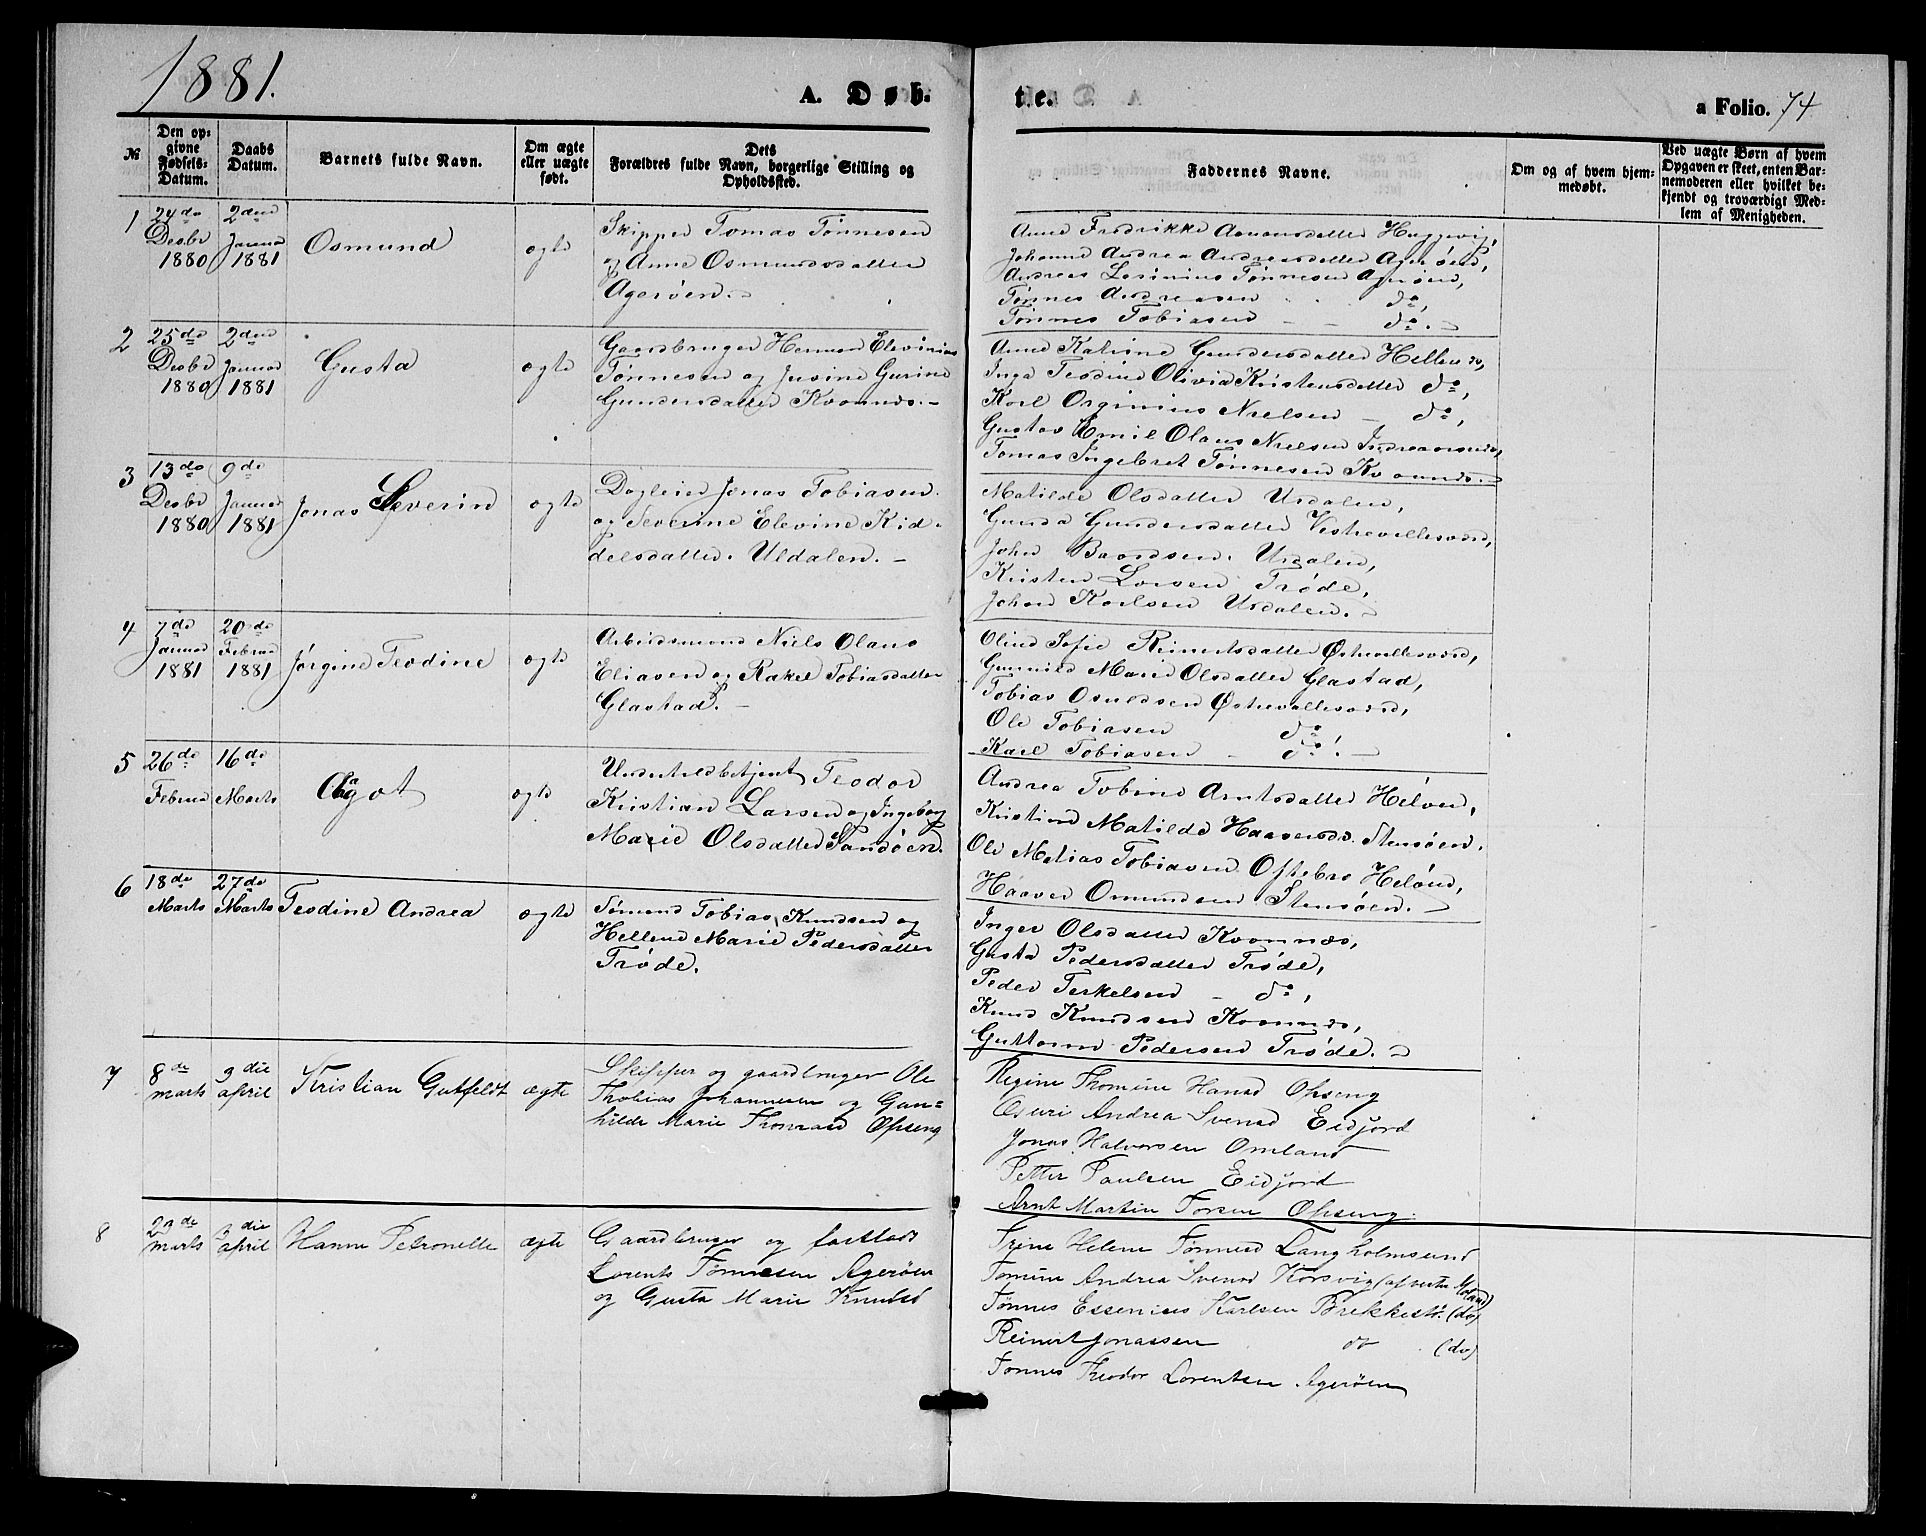 1881.
A. Døb.
te.
a Folio. 74
№
Den op-
givne
Fødsels-
Datum.
Daabs
Datum.
Barnets fulde Navn.
Om ægte
eller uægte
født.
Dets
Forældres fulde Navn, borgerlige Stilling og
Opholdssted.
Faddernes Navne.
Om og af hvem hjem-
medøbt.
Ved uægte Børn af hvem
Opgaven er skeet, enten Bar-
nemoderen eller hvilket be-
kjendt og troværdigt Med-
lem af Menigheden.
1
24de
Desbr
1880
2den
Januar
1881
Osmund
ægte
Skipper Tomas Tønnesen
og Anne Osmundsdatter
Agerøen.
Anne Fredrikke Aanonsdatter Huggevig,
Johanne Andrea Andreasdatter Agerøen,
Andreas Severinius Tønnesen Agerøen,
Tønnes Andreasen do,
Tønnes Tobiasen - - do. -
2
25de
Desbr
1880
2den
Januar
1881
Gusta
ægte
Gaardbruger Herman Elevinius
Tønnesen og Jusine Gurine
Gundersdatter Kvannes. -
Anne Katrine Gundersdatter Hellen
Inga Teodine Olivia Kristensdatter do,
Karl Orginius Nielsen - do,
Gustav Emil Olaus Nielsen
Tomas Ingebret Tønnesen Kvannes. -
3
13de
Desbr
1880
9de
Januar
1881
Jonas Severin
ægte
Dagleier Jonas Tobiasen
og Severine Elevine Kid-
delsdatter. Uldalen. -
Matilde Olsdatter Urdalen,
Gunda Gundersdatter Vestrevellesvær,
John Baardsen. Urdalen,
Kristen Larsen Trøde,
Johan Karlsen Urdalen. -
4
7de
Januar
1881
20de
Februar
1881
Jørgine Teodine
ægte
Arbeidsmand Niels Olaus
Eliasen og Rakel Tobiasdatter
Glastad. -
Oline Sofie Reinertsdatter Østrevellesvær,
Gunnild Marie Olsdatter Glastad,
Tobias Osuldsen Østrevellesvær,
Ole Tobiasen do
Karl Tobiasen - do! -
5
26de
Februar
16de
Marts
Aagot
ægte
Underhldbetjent Teodor
Kristian Larsen og Ingeborg
Marie Olsdatter Sandøen.
Andrea Tobine Arntsdatter Heløen,
Kristine Matilde Haaversdr. Stensøen.
Ole Matias Tobiasen Oftebro Heløen,
Haaver Omundsen Stensøen. -
6
18de
Marts
27de
Marts
Teodine Andrea
ægte
Sømand Tobias Knudsen og
Hellene Marie Pedersdatter
Trøde.
Inger Olsdatter Kvannes,
Gusta Pedersdatter Trøde,
Peder Terkelsen - do,
Knud Knudsen Kvannes,
Guttorm Pedersen Trøde. -
7
8de
marts
9die
april
Kristian Gutfeldt
ægte
Skipper og gaardbruger Ole
Thobias Johannesen og Gun=
hilde Marie Thomasd Opseng
Regine Thomine Hansd Opseng
Osuri Andrea Svensd Eidjord
Jonas Halvorsen Omland
Petter Paulsen Eidjord
Arnt Martin Torsen Opseng.
8
23de
marts
3die
april
Hanne Petronelle
ægte
Gaardbruger og fartlods
Lorents Tønnesen Agerøen
og Gusta Marie Knutsd
Trine Helene Tønnesd Langholmsund
Tomine Andrea Svensd Korsvig (af vestre Moland)
Tønnes Essenius Karlsen Brekkestø. (do)
Reinert Jonassen do (do)
Tønnes Theodor Lorentsen Agerøen